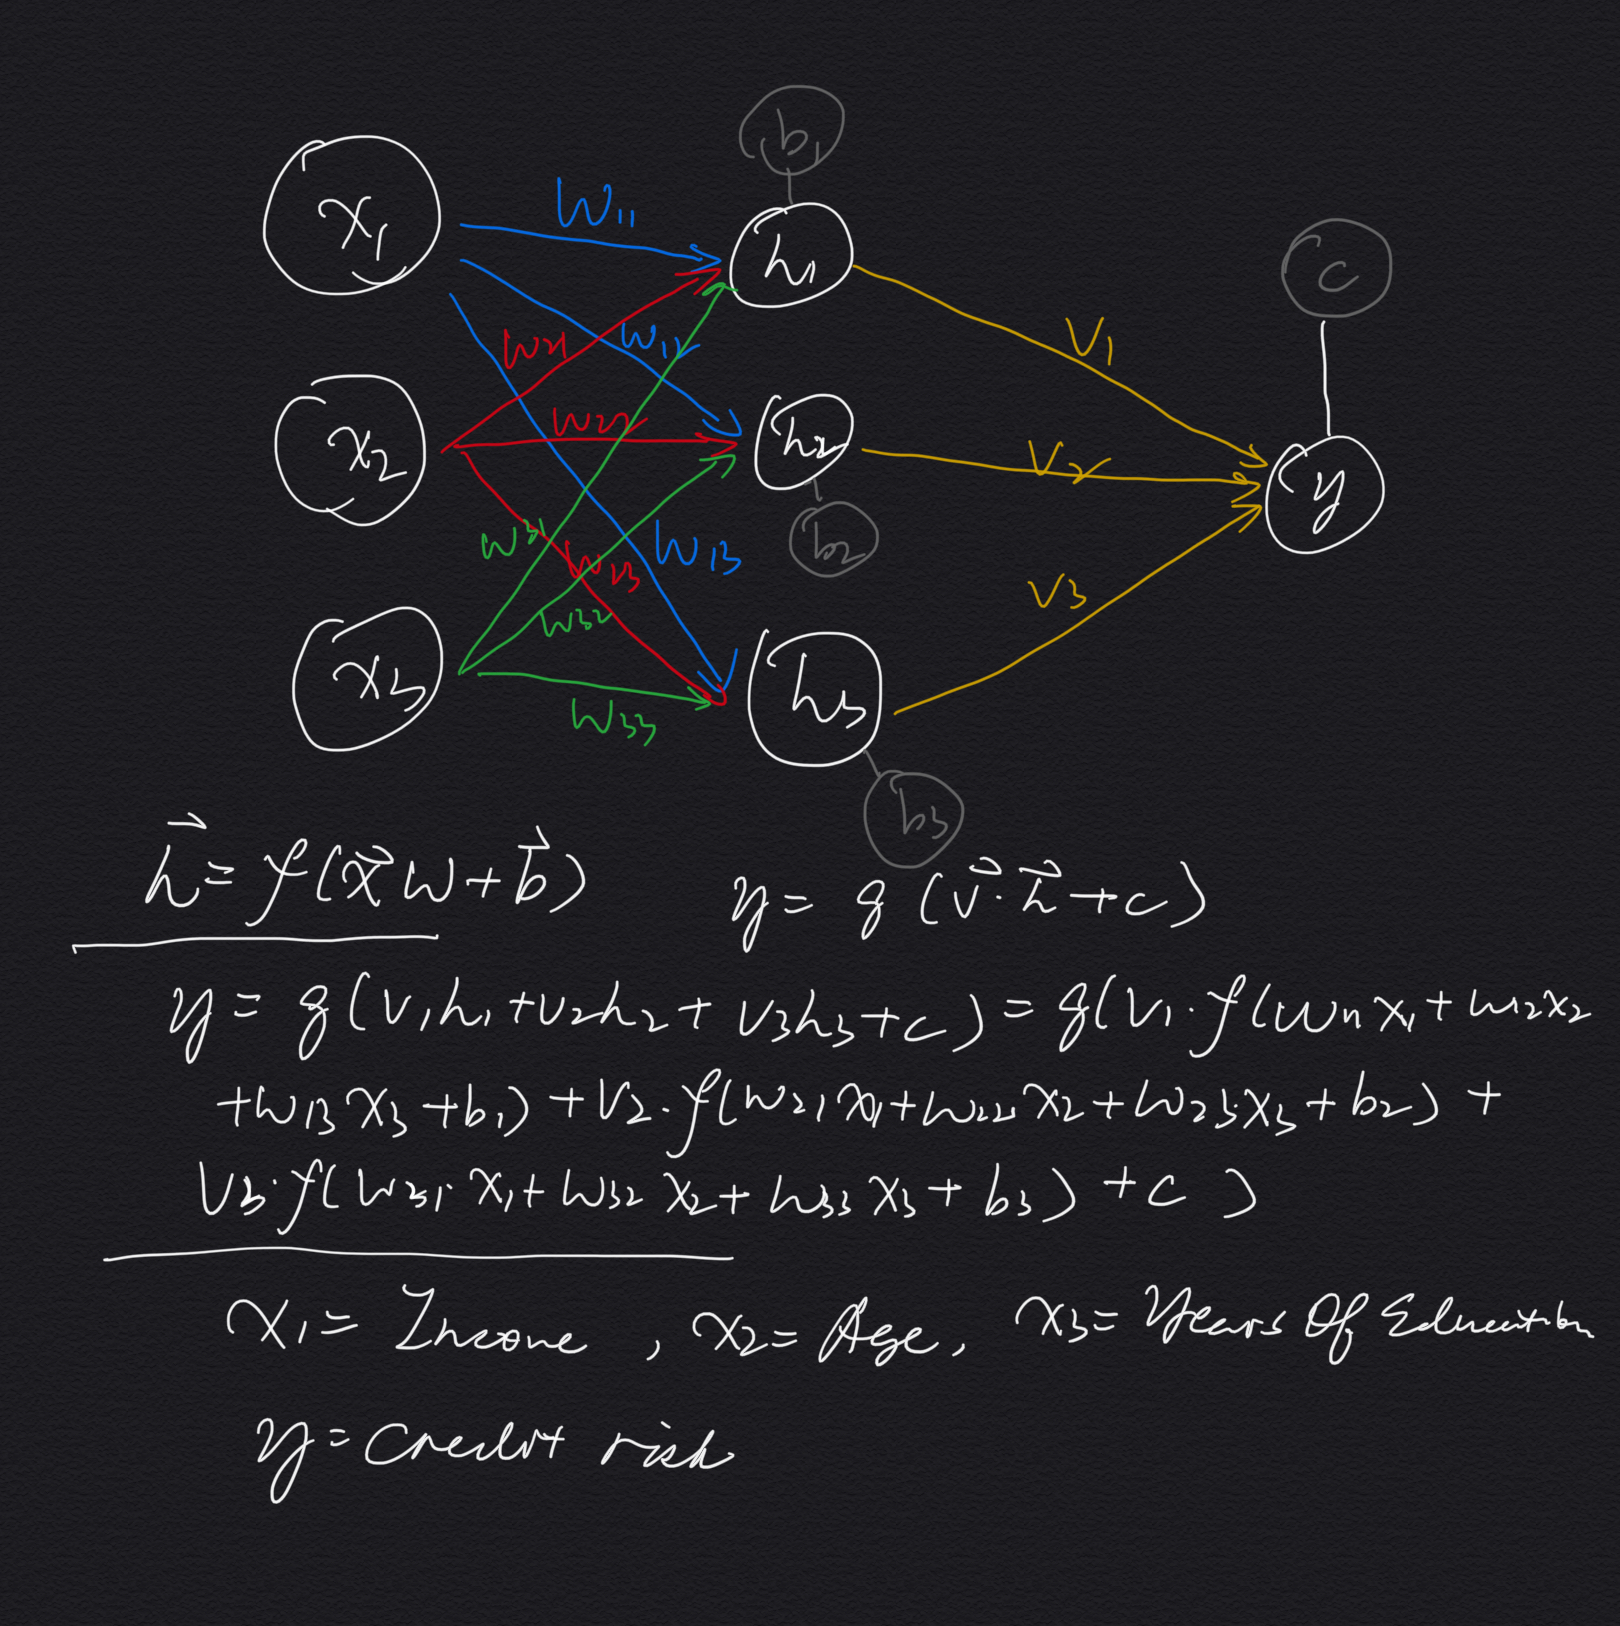 b₁
x₁ W₁₁ h₁ c
W₂₁ W₁₂ V₁
x₂ W₂₂ h₂ V₂ y
W₃₁ W₂₃ W₁₃ b₂
W₃₂ V₃
x₃ W₃₃ h₃
b₃
h⃗ = f(x⃗W + b⃗) y = g(v⃗·h⃗ + c)
y = g(v₁h₁ + v₂h₂ + v₃h₃ + c) = g(v₁·f(w₁₁x₁ + w₁₂x₂
+ w₁₃x₃ + b₁) + v₂·f(w₂₁x₁ + w₂₂x₂ + w₂₃x₃ + b₂) +
v₃·f(w₃₁·x₁ + w₃₂x₂ + w₃₃x₃ + b₃) + c)
x₁ = Income, x₂ = Age, x₃ = Years Of Education
y = Credit risk